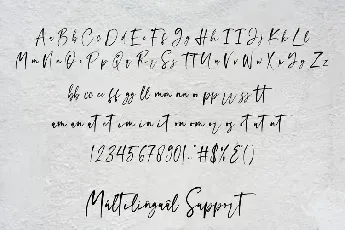 A a B b C c D d E e F f G g H h I i J j K k L l
M m N n O o P p Q q R r S s T t U u V v W w X x Y y Z z
bb cc ee ff gg ll mm nn o pp rr ss tt
am an at et im in it on om or os it ut ut
1234567890!."#$%&()
Múltilinguãl Support